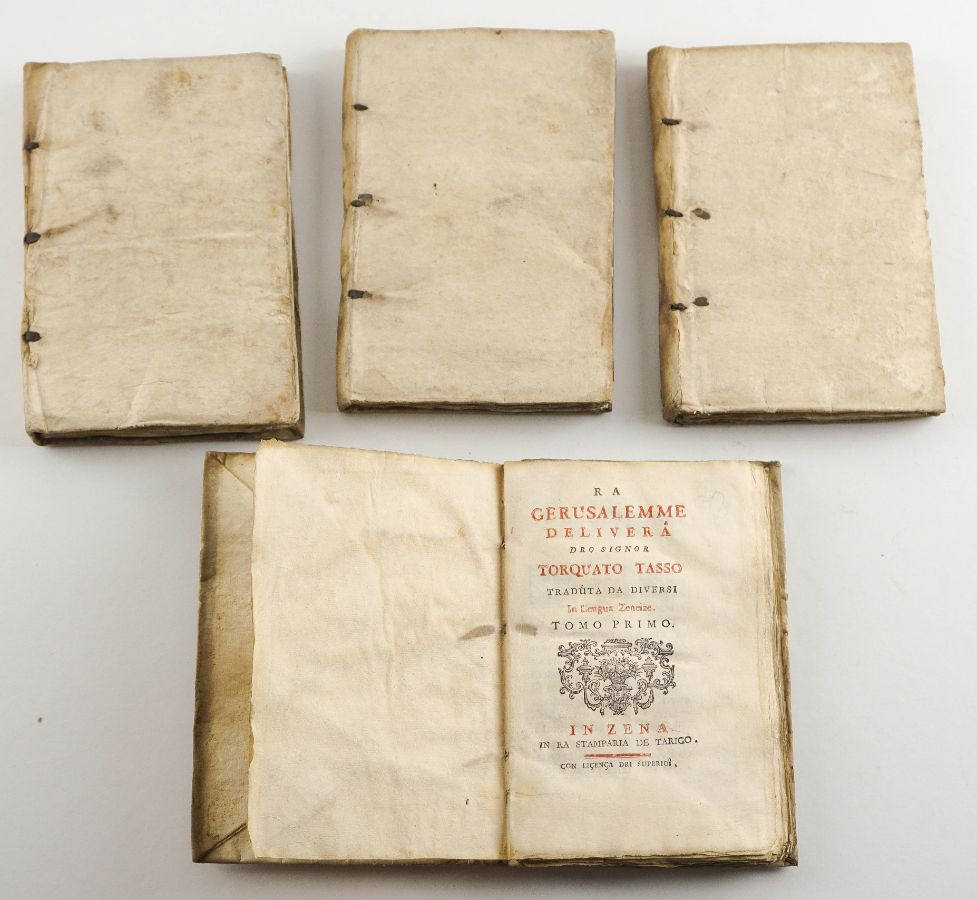 RA
GERUSALEMME
DELIVERÂ
DRO SIGNOR
TORQUATO TASSO
TRADÛTA DA DIVERSI
In Lengua Zeneize.
TOMO PRIMO.
IN ZENA
IN RA STAMPARIA DE TARIGO.
CON LIÇENÇA DRI SUPERIOÎ.